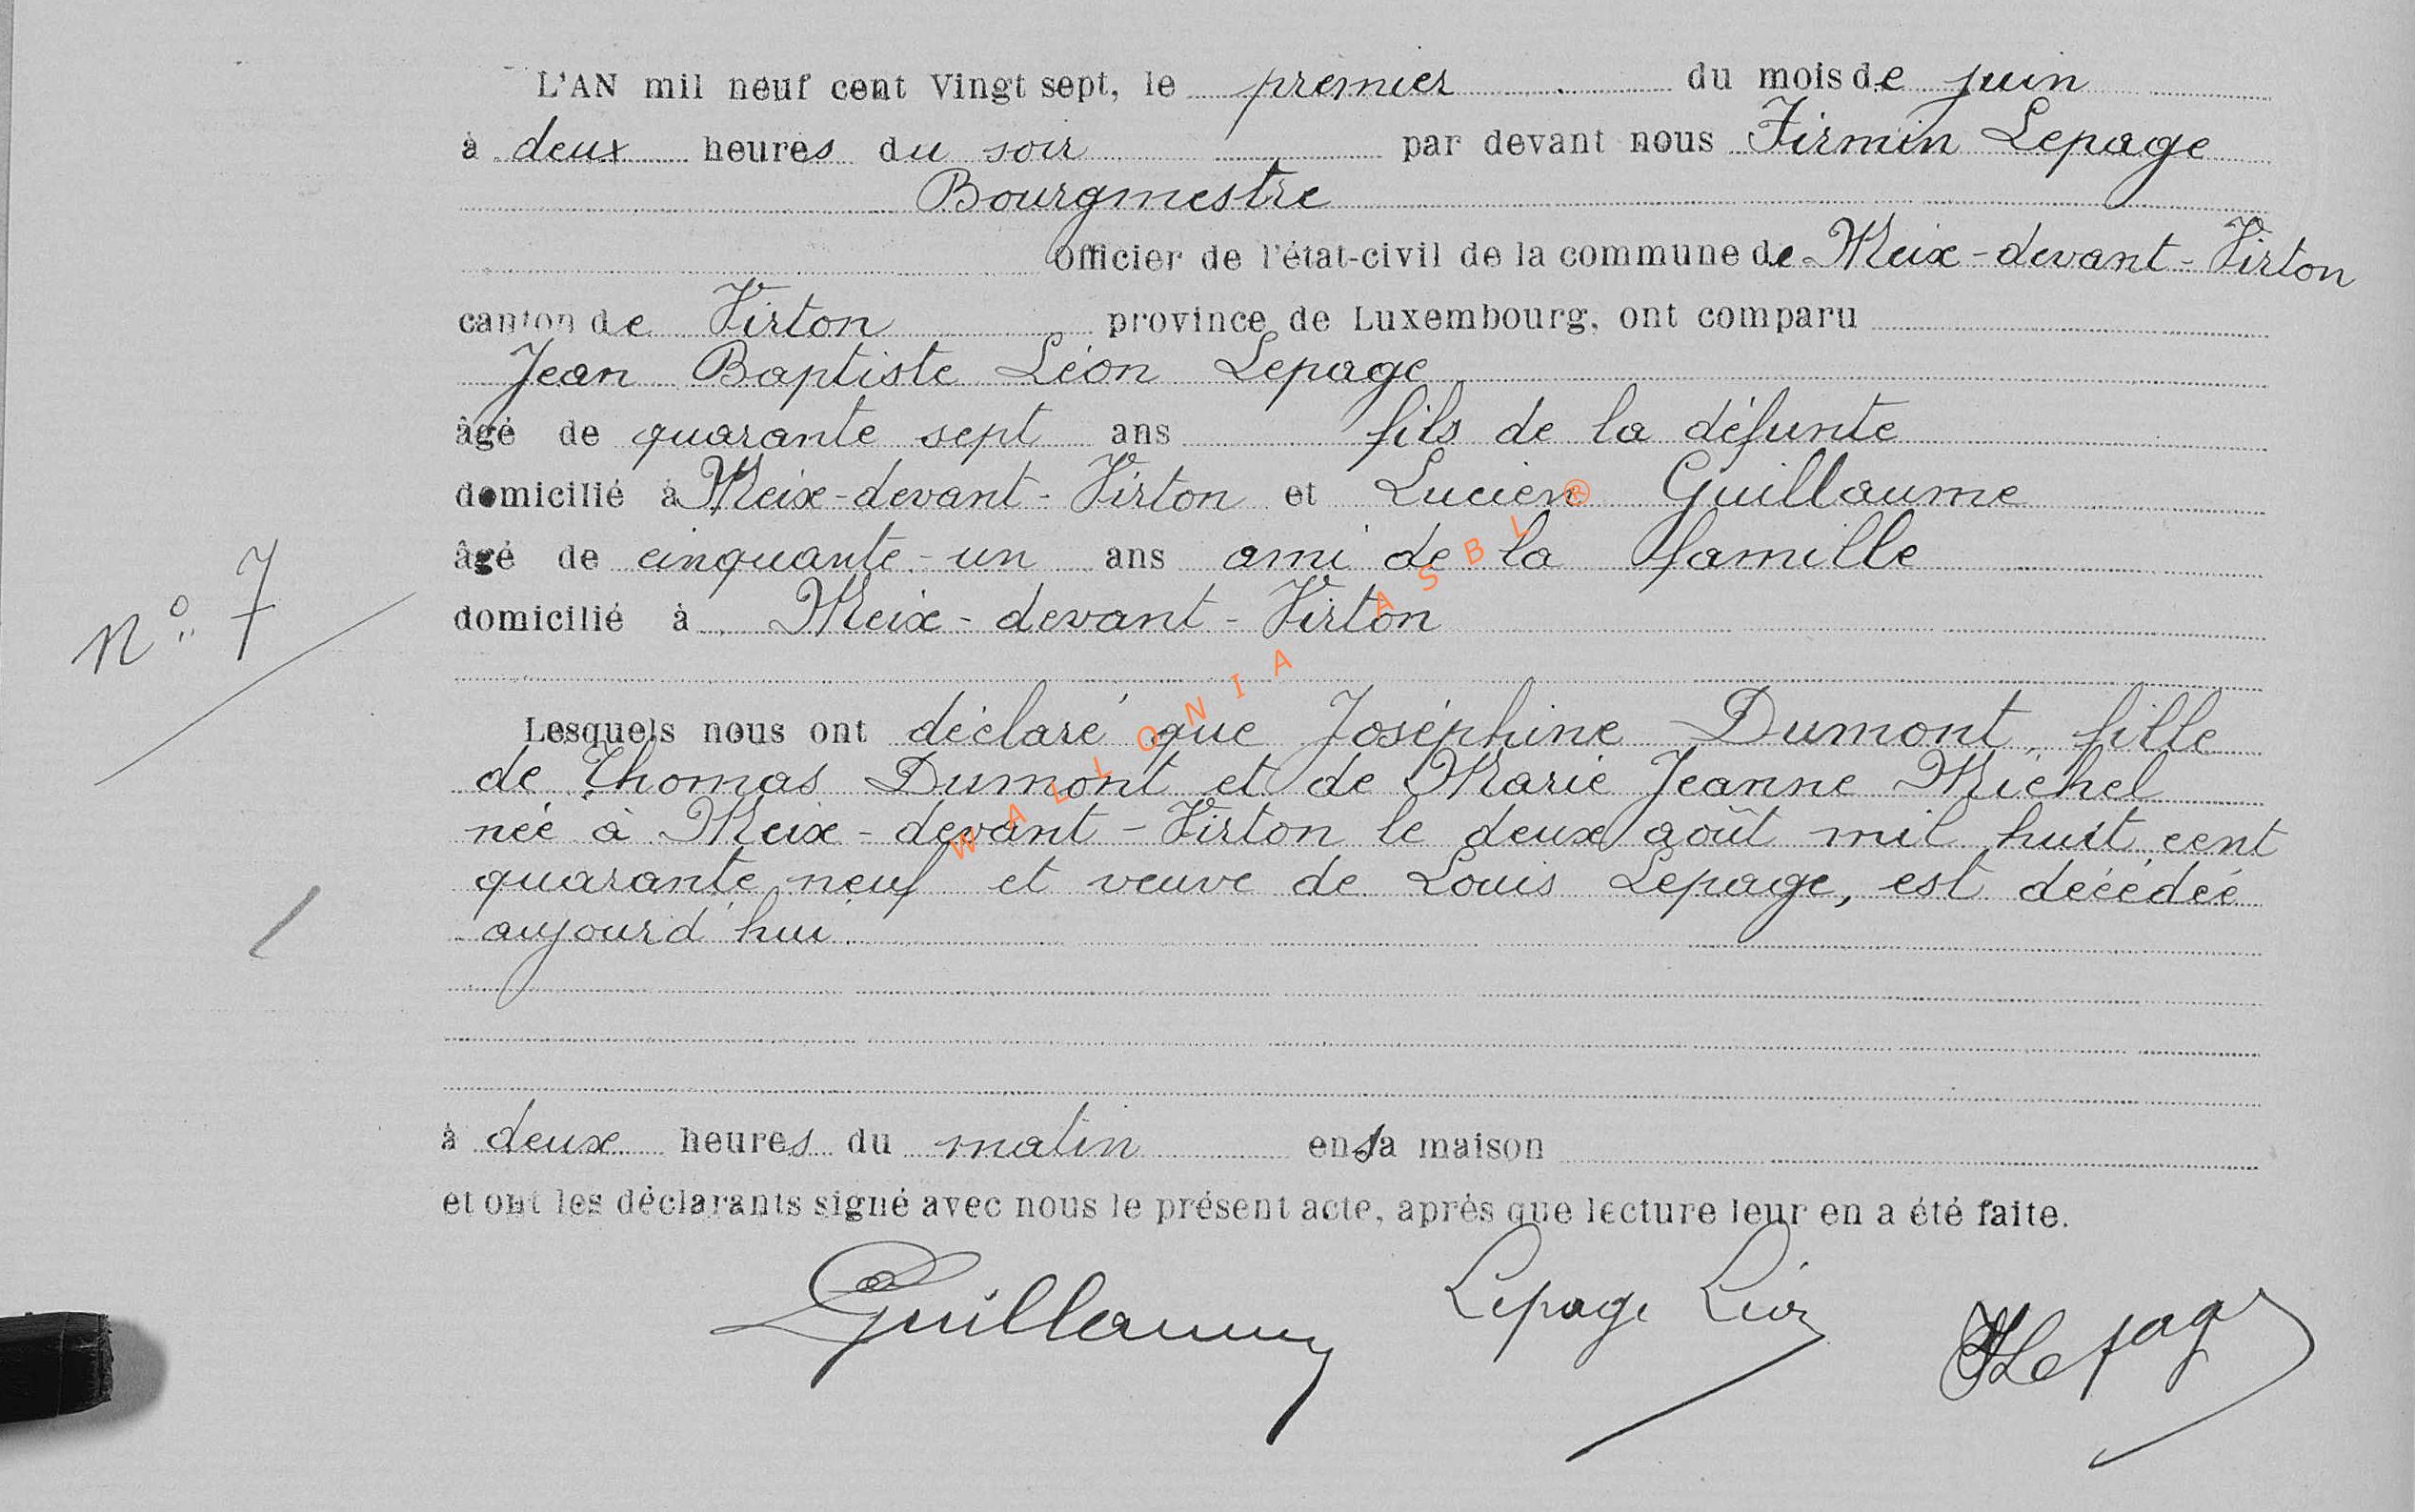 L'AN mil neuf cent Vingt sept, le premier du mois de juin
à deux heures du soir par devant nous Firmin Lepage
Bourgmestre
officier de l'état-civil de la commune de Meix-devant-Virton
canton de Virton province de Luxembourg, ont comparu
Jean Baptiste Léon Lepage
âgé de quarante sept ans fils de la défunte
domicilié à Meix-devant-Virton et Lucien Guillaume
âgé de cinquante-un ans ami de la famille
domicilié à Meix-devant-Virton
N° 7
Lesquels nous ont déclaré que Joséphine Dumont, fille
de Thomas Dumont et de Marie Jeanne Michel
née à Meix-devant-Virton le deux août mil huit cent
quarante neuf et veuve de Louis Lepage, est décédée
aujourd'hui
à deux heures du matin en sa maison
et ont les déclarants signé avec nous le présent acte, après que lecture leur en a été faite.
LGuillaume Lepage Léon FLepage
WALLONIA ASBL ®